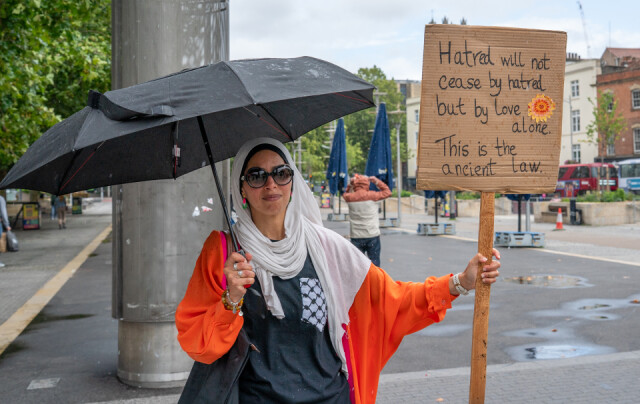 Hatred will not
cease by hatred
but by love
alone.
This is the
ancient law.